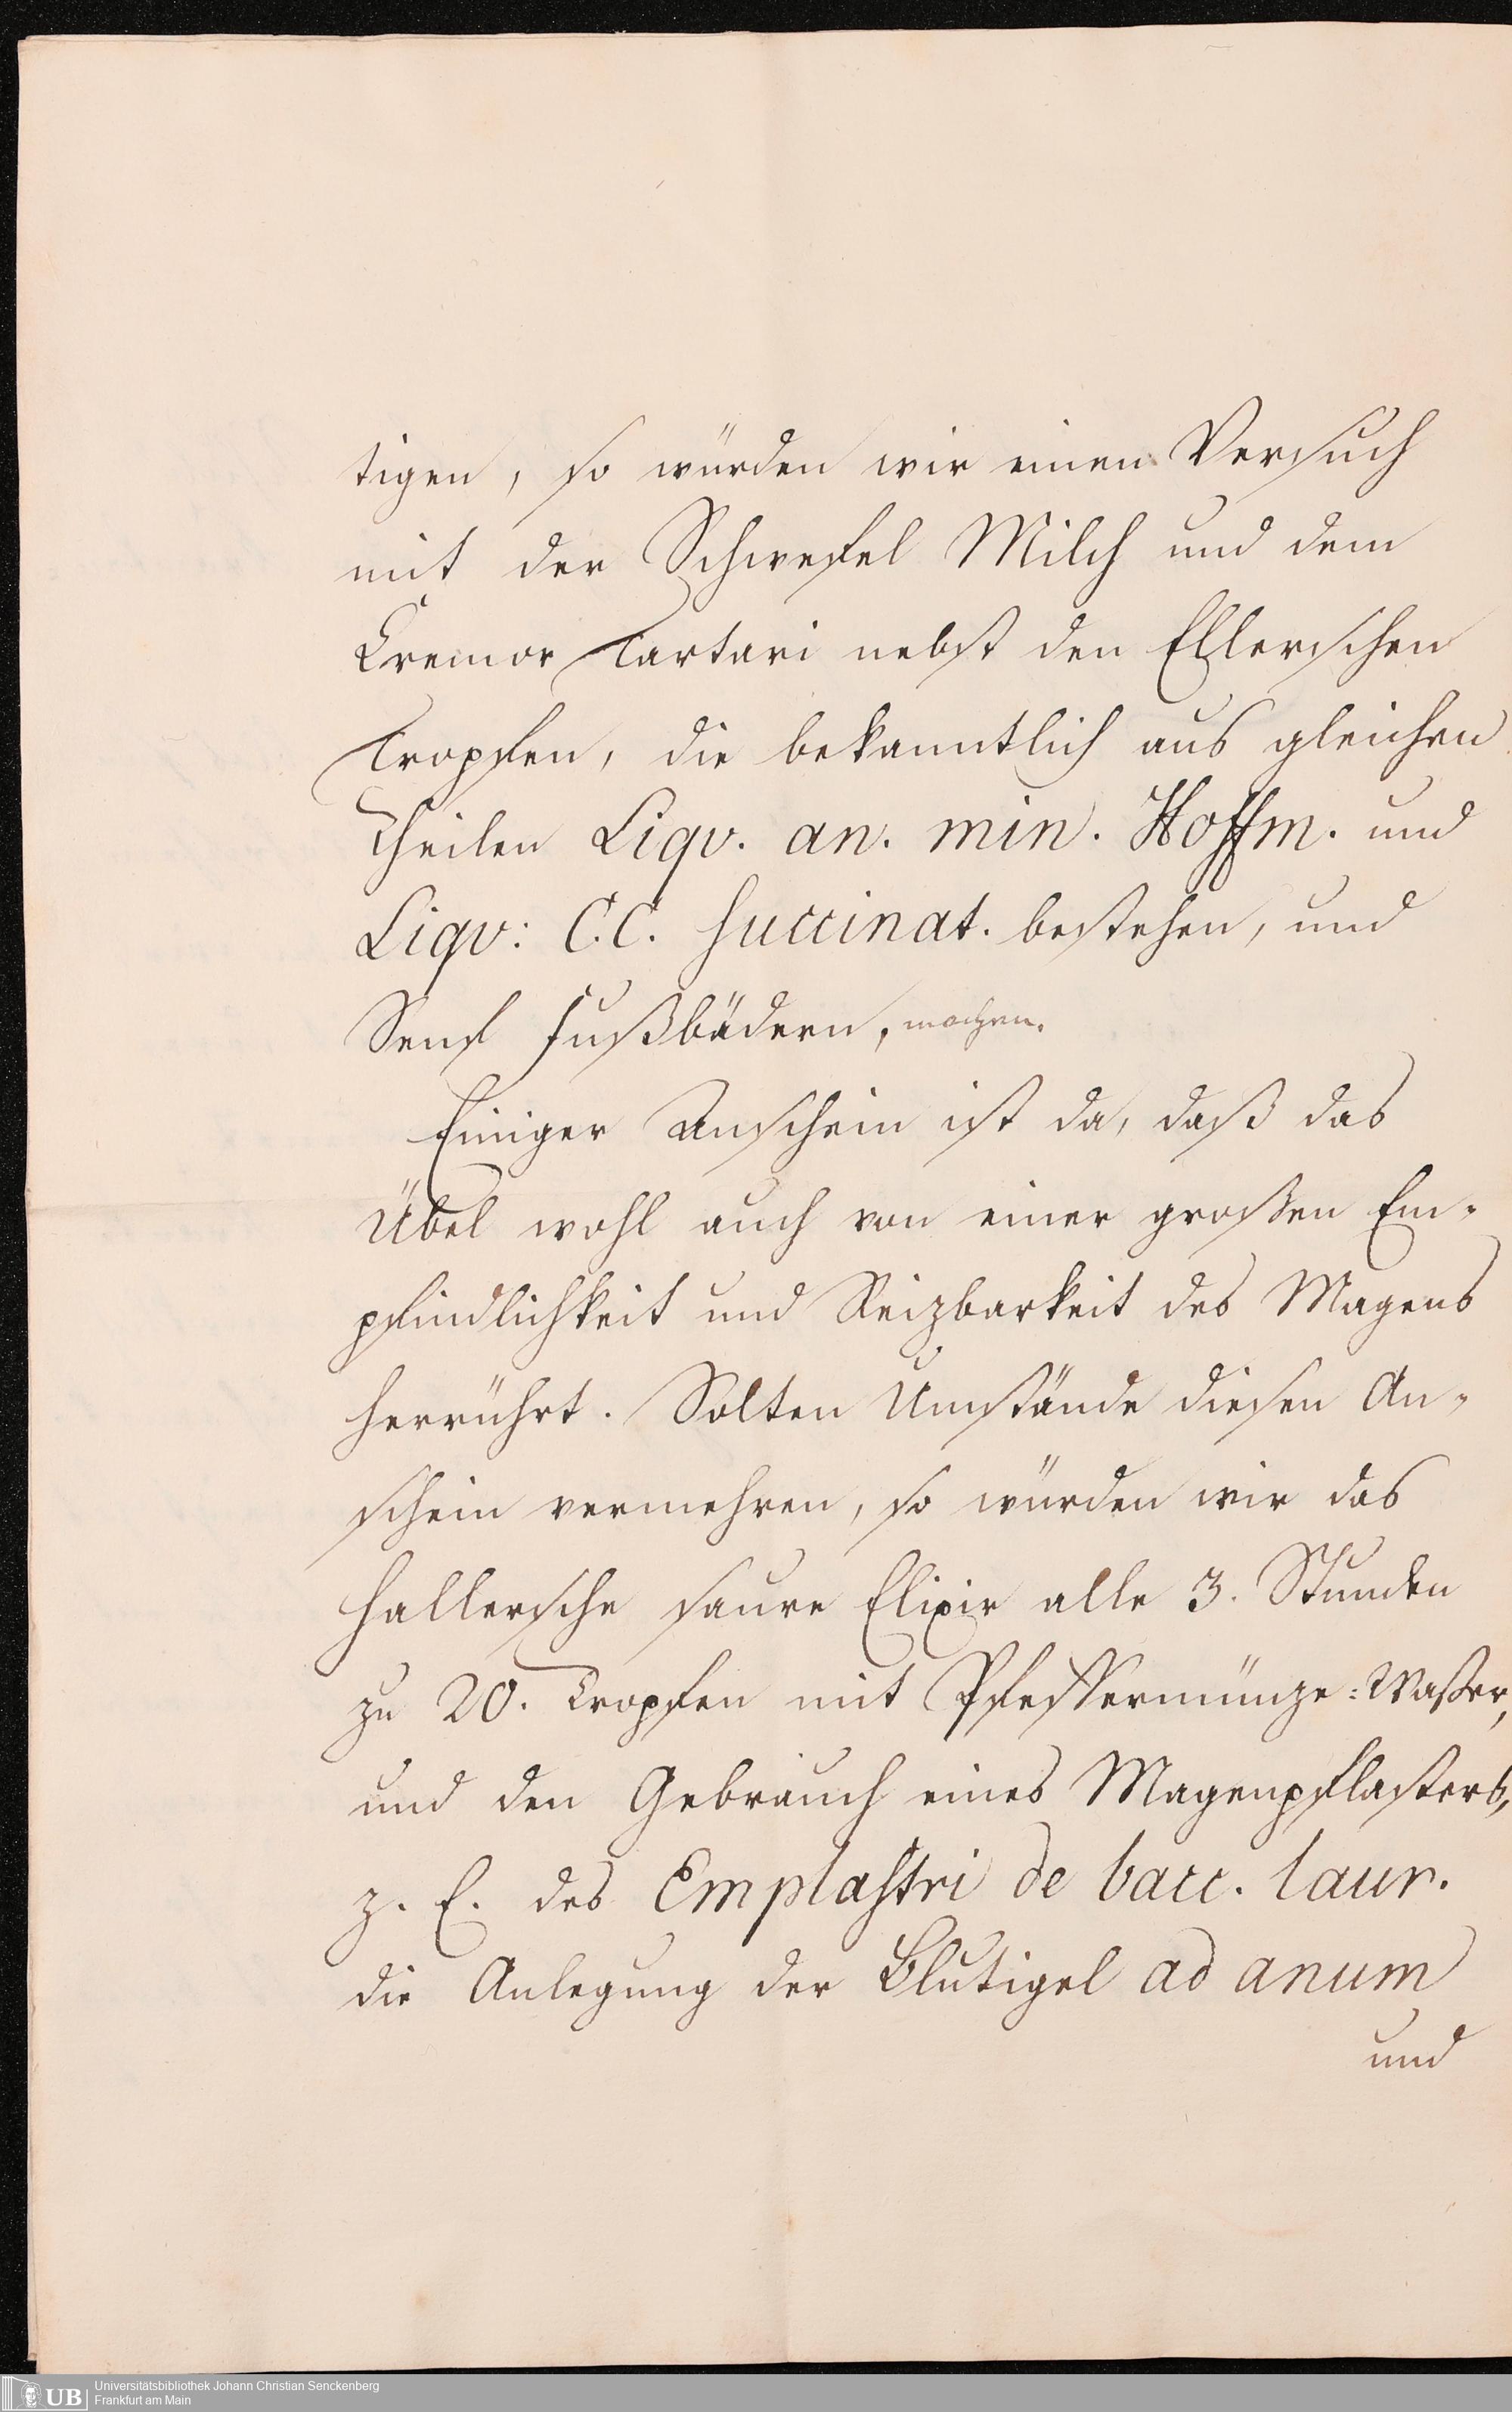 tigen, so würden wir einen Versuch
mit der Schwefel Milch und dem
Cremor Tartari nebst den Ellerschen
Tropfen, die bekanntlich aus gleichen
Theilen Liqv. an. min. Hoffm. und
Liqv: C.C. succinat. bestehen, und
Senf Fußbädern, machen.
Einiger Anschein ist da, daß das
Übel wohl auch von einer großen Em-
pfindlichkeit und Reizbarkeit des Magens
herrührt. Solten Umstände diesen An-
schein vermehren, so würden wir das
Hallersche saure Elixir alle 3. Stunden
zu 20. Tropfen mit Pfeffermünze-Waßer,
und den Gebrauch eines Magenpflasters,
z. E. des Emplastri de bacc. laur.
die Anlegung der Blutigel ad anum
und
UB
Universitätsbibliothek Johann Christian Senckenberg
Frankfurt am Main